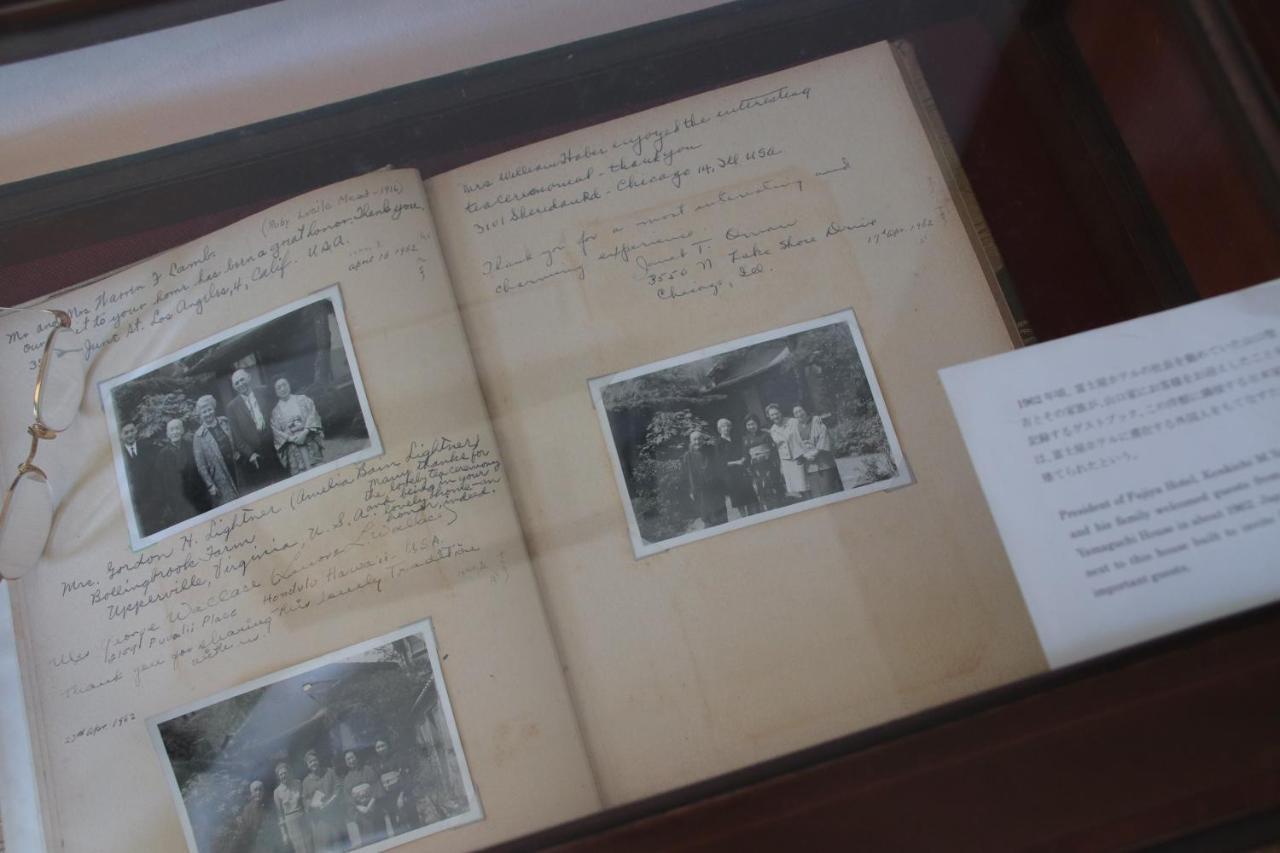 (Ruby Lucile Mead - 1916)
Mr and Mrs Warren F Lamb.
our to your home has been a great honor. Thank you.
June St. Los Angeles, 4, Calif. USA.
april 16 1962
Mrs. Gordon H. Lightner (Amelia Bain Lightner)
Bollingbrook Farm
Upperville, Virginia, U.S.A.
many thanks for
the lovely tea ceremony
and being in your
lovely home - an
honor, indeed.
Mrs George Wallace (Lenore L Wallace)
Place Honolulu Hawaii - USA.
Thank you for sharing this lovely tradition
with us.
27th apr. 1962
Mrs William Haber enjoyed the interesting
teaceremonial - thank you
3101 Sheridan Rd - Chicago 14, Ill USA.
Thank you for a most interesting and
charming experience.
Janet T.
3550 N Lake Shore Drive
Chicago, Ill.
17th apr. 1962
1962年頃、富士屋ホテルの社長を勤めていた山口
おとその家族が、山口家にお客様をお迎えしたことを
記録するゲストブック。この洋館に隣接する日本家
は、富士屋ホテルに滞在する外国人をもてなすた
建てられたという。
President of Fujiya Hotel, Kenkichi M.
and his family welcomed guests from
Yamaguchi House in about 1962.
next to this house built to invite
important guests.